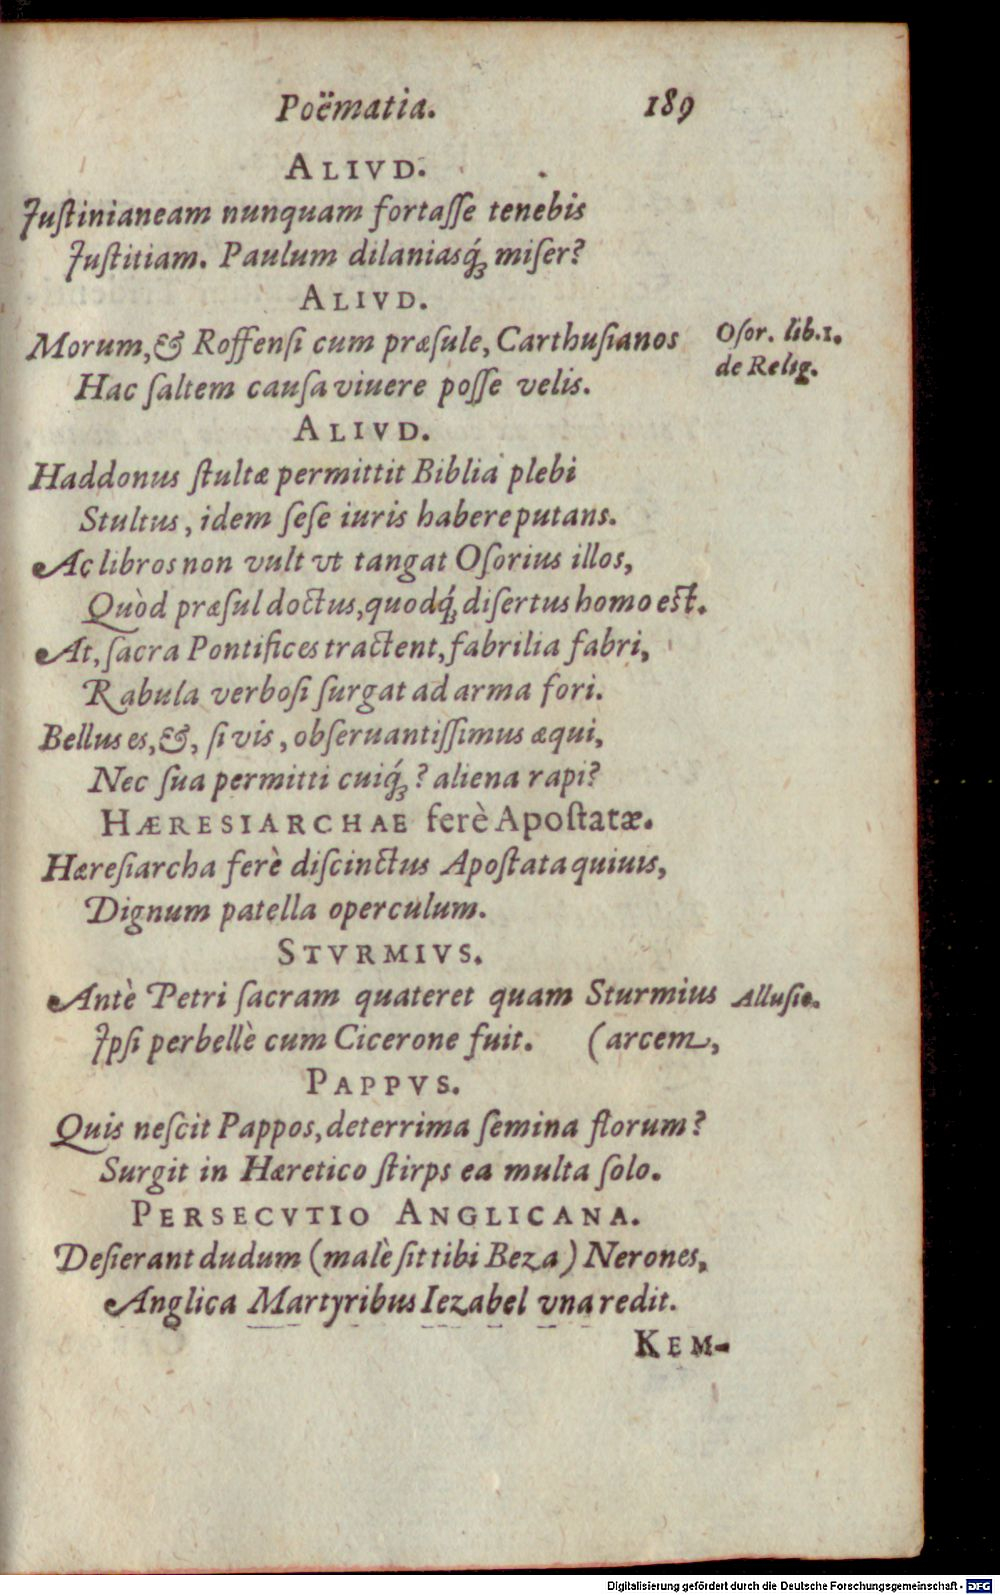 Poëmatia. 189
ALIVD.
Iuſtinianeam nunquam fortaſſe tenebis
Iuſtitiam. Paulum dilaniasq́ꝫ miſer?
ALIVD.
Morum, & Roffenſi cum præſule, Carthuſianos
Oſor. lib. 1.
de Relig.
Hac ſaltem cauſa viuere poſſe velis.
ALIVD.
Haddonus ſtultæ permittit Biblia plebi
Stultus, idem ſeſe iuris habere putans.
Ac libros non vult vt tangat Oſorius illos,
Quòd præſul doctus, quodq́ꝫ diſertus homo eſt.
At, ſacra Pontifices tractent, fabrilia fabri,
Rabula verboſi ſurgat ad arma fori.
Bellus es, &, ſi vis, obſeruantiſſimus æqui,
Nec ſua permitti cuiq́ꝫ? aliena rapi?
HÆRESIARCHAE ferè Apoſtatæ.
Hæreſiarcha ferè diſcinctus Apoſtata quiuis,
Dignum patella operculum.
STVRMIVS.
Antè Petri ſacram quateret quam Sturmius
Alluſio.
Ipſi perbellè cum Cicerone fuit. (arcem,
PAPPVS.
Quis neſcit Pappos, deterrima ſemina florum?
Surgit in Hæretico ſtirps ea multa ſolo.
PERSECVTIO ANGLICANA.
Deſierant dudum (malè ſit tibi Beza) Nerones,
Anglica Martyribus Iezabel vna redit.
KEM-
Digitalisierung gefördert durch die Deutsche Forschungsgemeinschaft - DFG